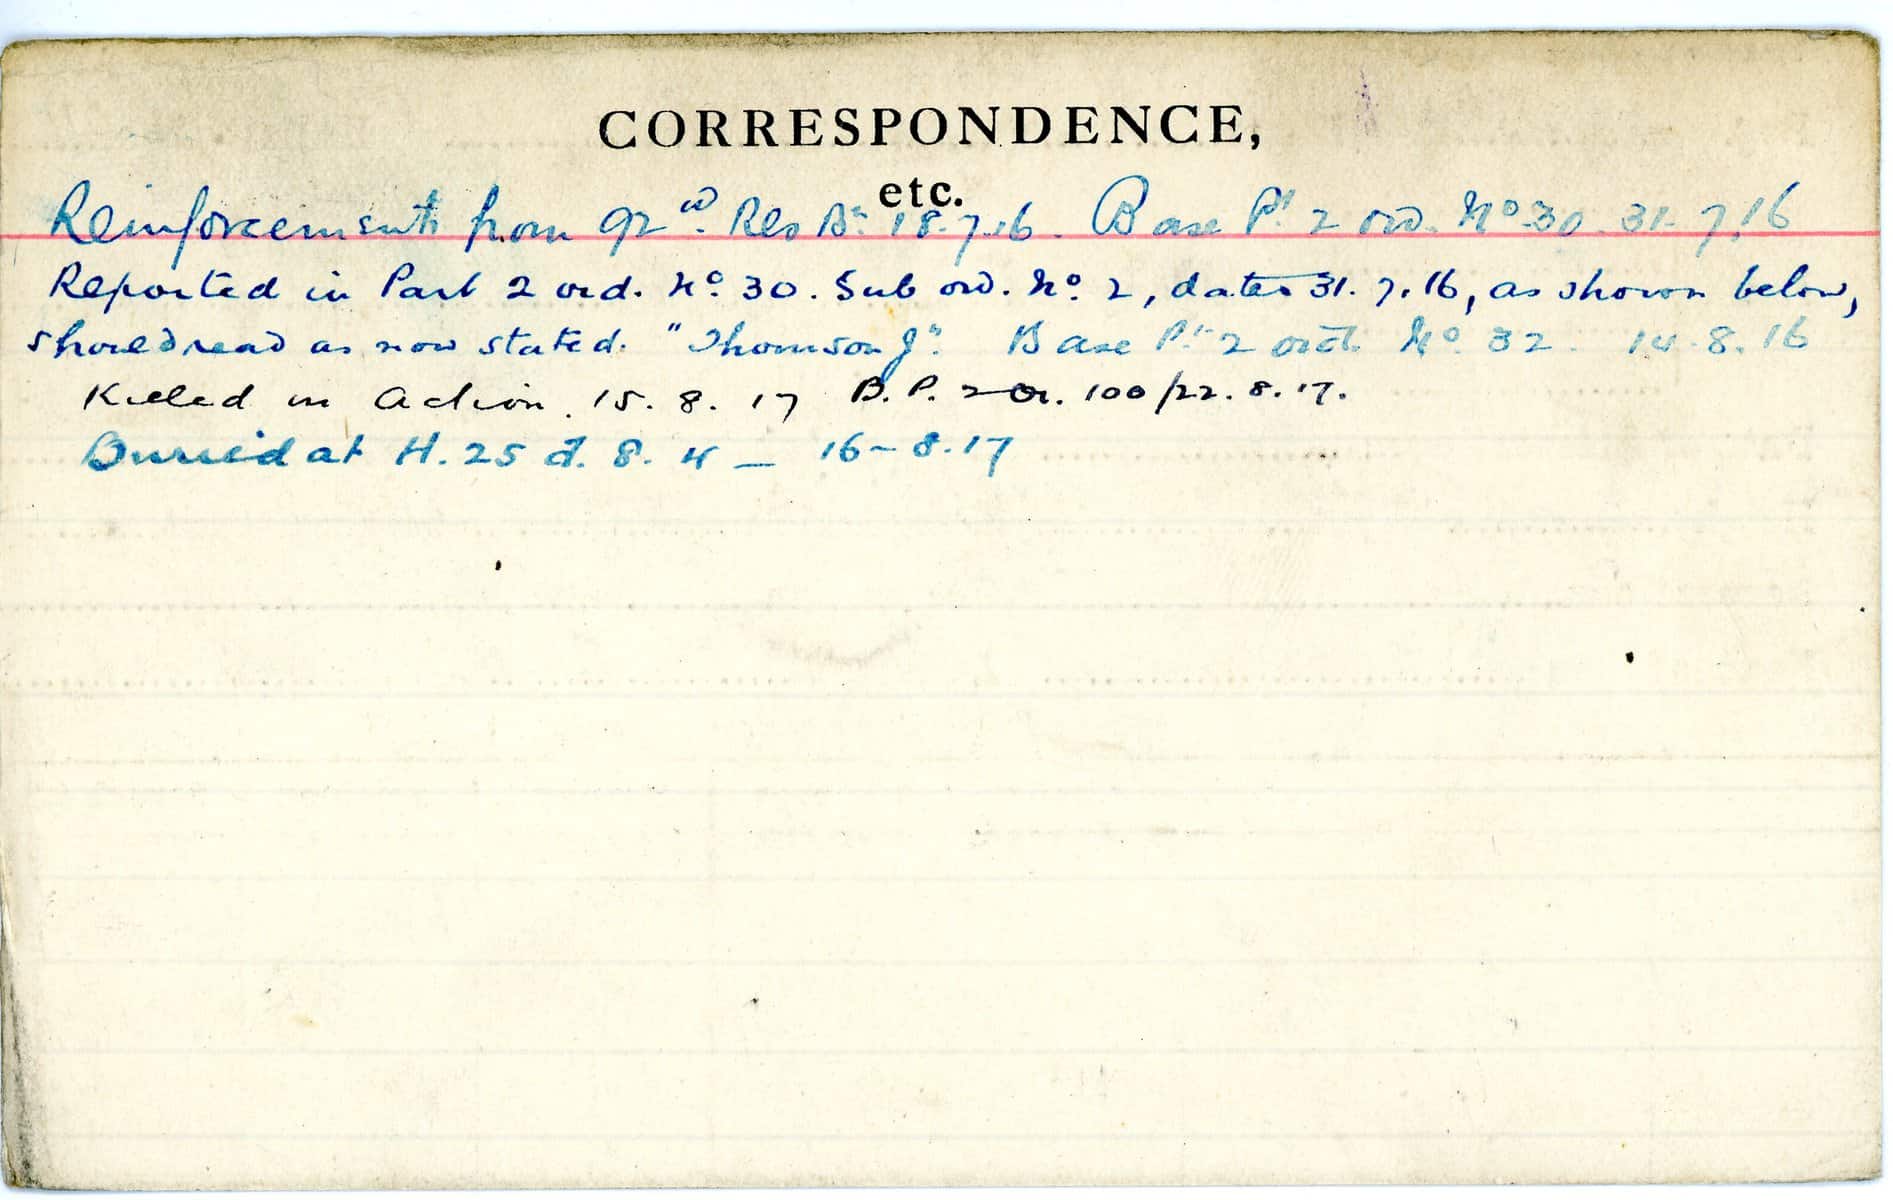 CORRESPONDENCE,
etc.
Reinforcements from 92nd. Res Bn. 18.7.16. Base Pt 2 ord. No 30. 31.7.16
Reported in Part 2 ord. No. 30. Sub ord. No. 2, dated 31.7.16, as shown below,
should read as now stated. "Thomson J". Base Pt 2 ord. No. 32. 14.8.16
Killed in Action. 15.8.17 B.P. 2 Or. 100/22.8.17.
Buried at H.25 d. 8.4 — 16-8.17